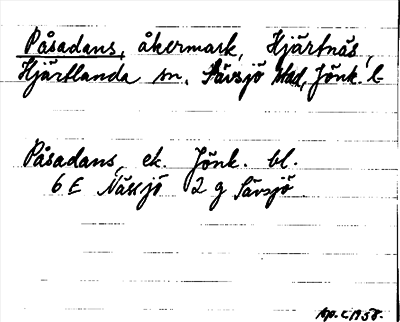 Påsadans, åkermark, Hjärtnäs,
Hjärtlanda sn. Sävsjö stad, Jönk. l.
Påsadans, ek. Jönk. bl.
6 E Nässjö 2 g Sävsjö
c 1958.